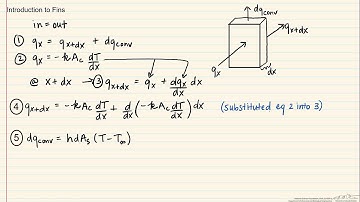 Introduction to Fins
in = out
① qx = qx+dx + dqconv
② qx = -kAc dT/dx
@ x + dx → ③ qx+dx = qx + dqx/dx dx
④ qx+dx = -kAc dT/dx + d/dx (-kAc dT/dx) dx (substituted eq 2 into 3)
⑤ dqconv = hdAs (T - T∞)
dqconv
qx
qx+dx
dx